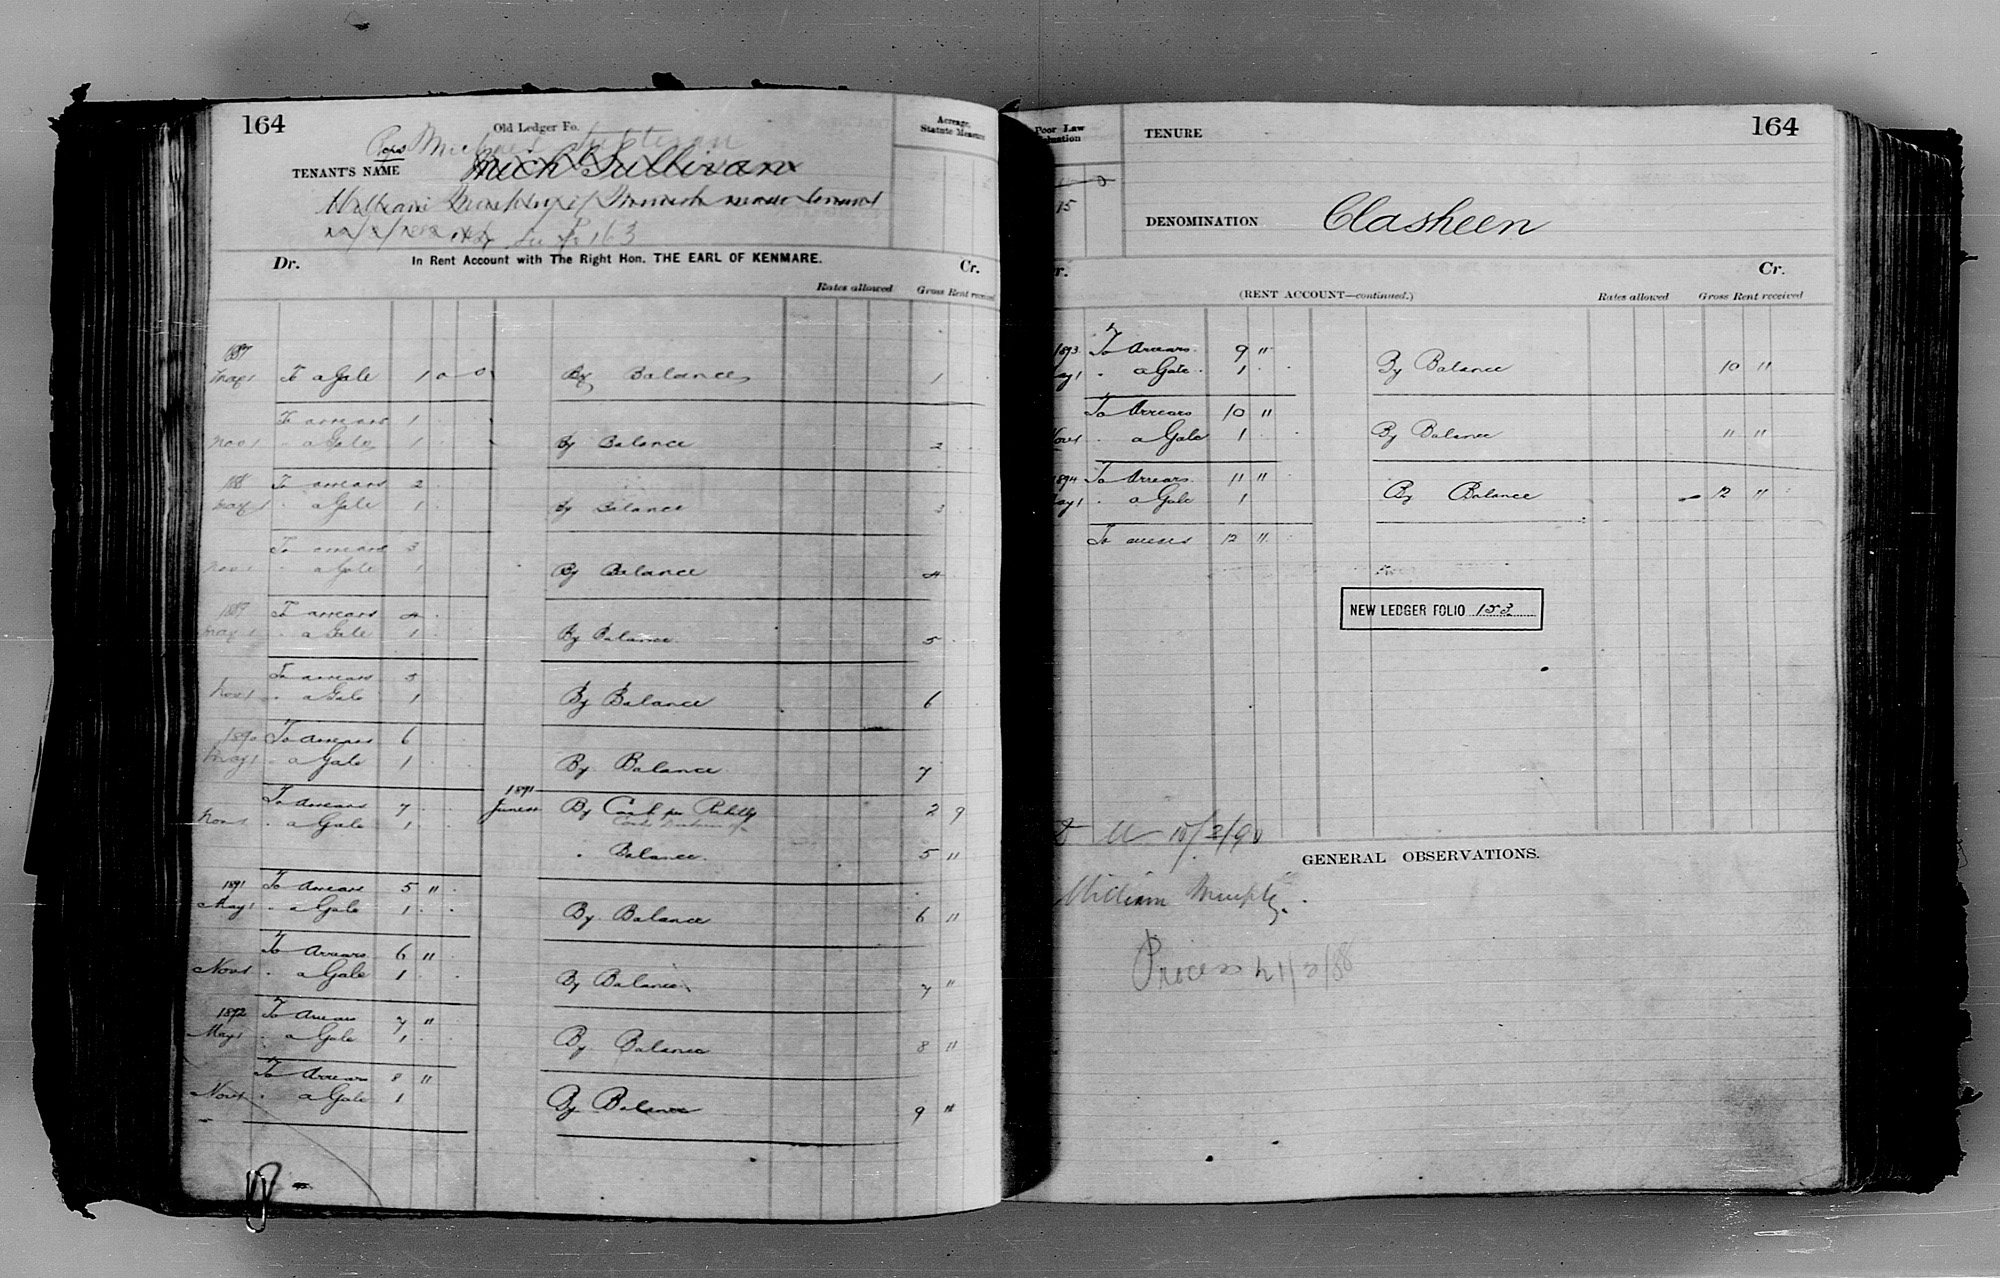 164
Old Ledger Fo.
Acreage,
Statute Measure
Michael
TENANT'S NAME Mich Sullivan
163
Dr. In Rent Account with The Right Hon. THE EARL OF KENMARE. Cr.
Rates allowed Gross Rent received
1887
May 1 To a Gale 1 0 0 By Balance 1
To arrears 1
Nov 1 " a Gale 1 By Balance 2
1888 To arrears 2
May 1 " a Gale 1 By Balance 3
To arrears 3
Nov 1 " a Gale 1 By Balance 4
1889 To arrears 4
May 1 " a Gale 1 By Balance 5
To arrears 5
Nov 1 " a Gale 1 By Balance 6
1890 To Arrears 6
May 1 " a Gale 1 By Balance 7
1891
To Arrears 7 June By Cash per 2 9
Nov 1 " a Gale 1
" Balance 5 "
1891 To Arrears 5 "
May 1 " a Gale 1 By Balance 6 "
To Arrears 6 "
Nov 1 " a Gale 1 By Balance 7 "
1892 To Arrears 7 "
May 1 " a Gale 1 By Balance 8 "
To Arrears 8 "
Nov 1 " a Gale 1 By Balance 9 "
Poor Law
TENURE
164
15
DENOMINATION Clasheen
Cr.
(RENT ACCOUNT—continued.)
Rates allowed Gross Rent received
1893 To Arrears 9 "
" a Gale 1 By Balance 10 "
To Arrears 10 "
Nov 1 " a Gale 1 By Balance 11 "
1894 To Arrears 11 "
" a Gale 1 By Balance 12 "
To arrears 12 "
NEW LEDGER FOLIO 153
GENERAL OBSERVATIONS.
William Murphy.
Process 21/3/88